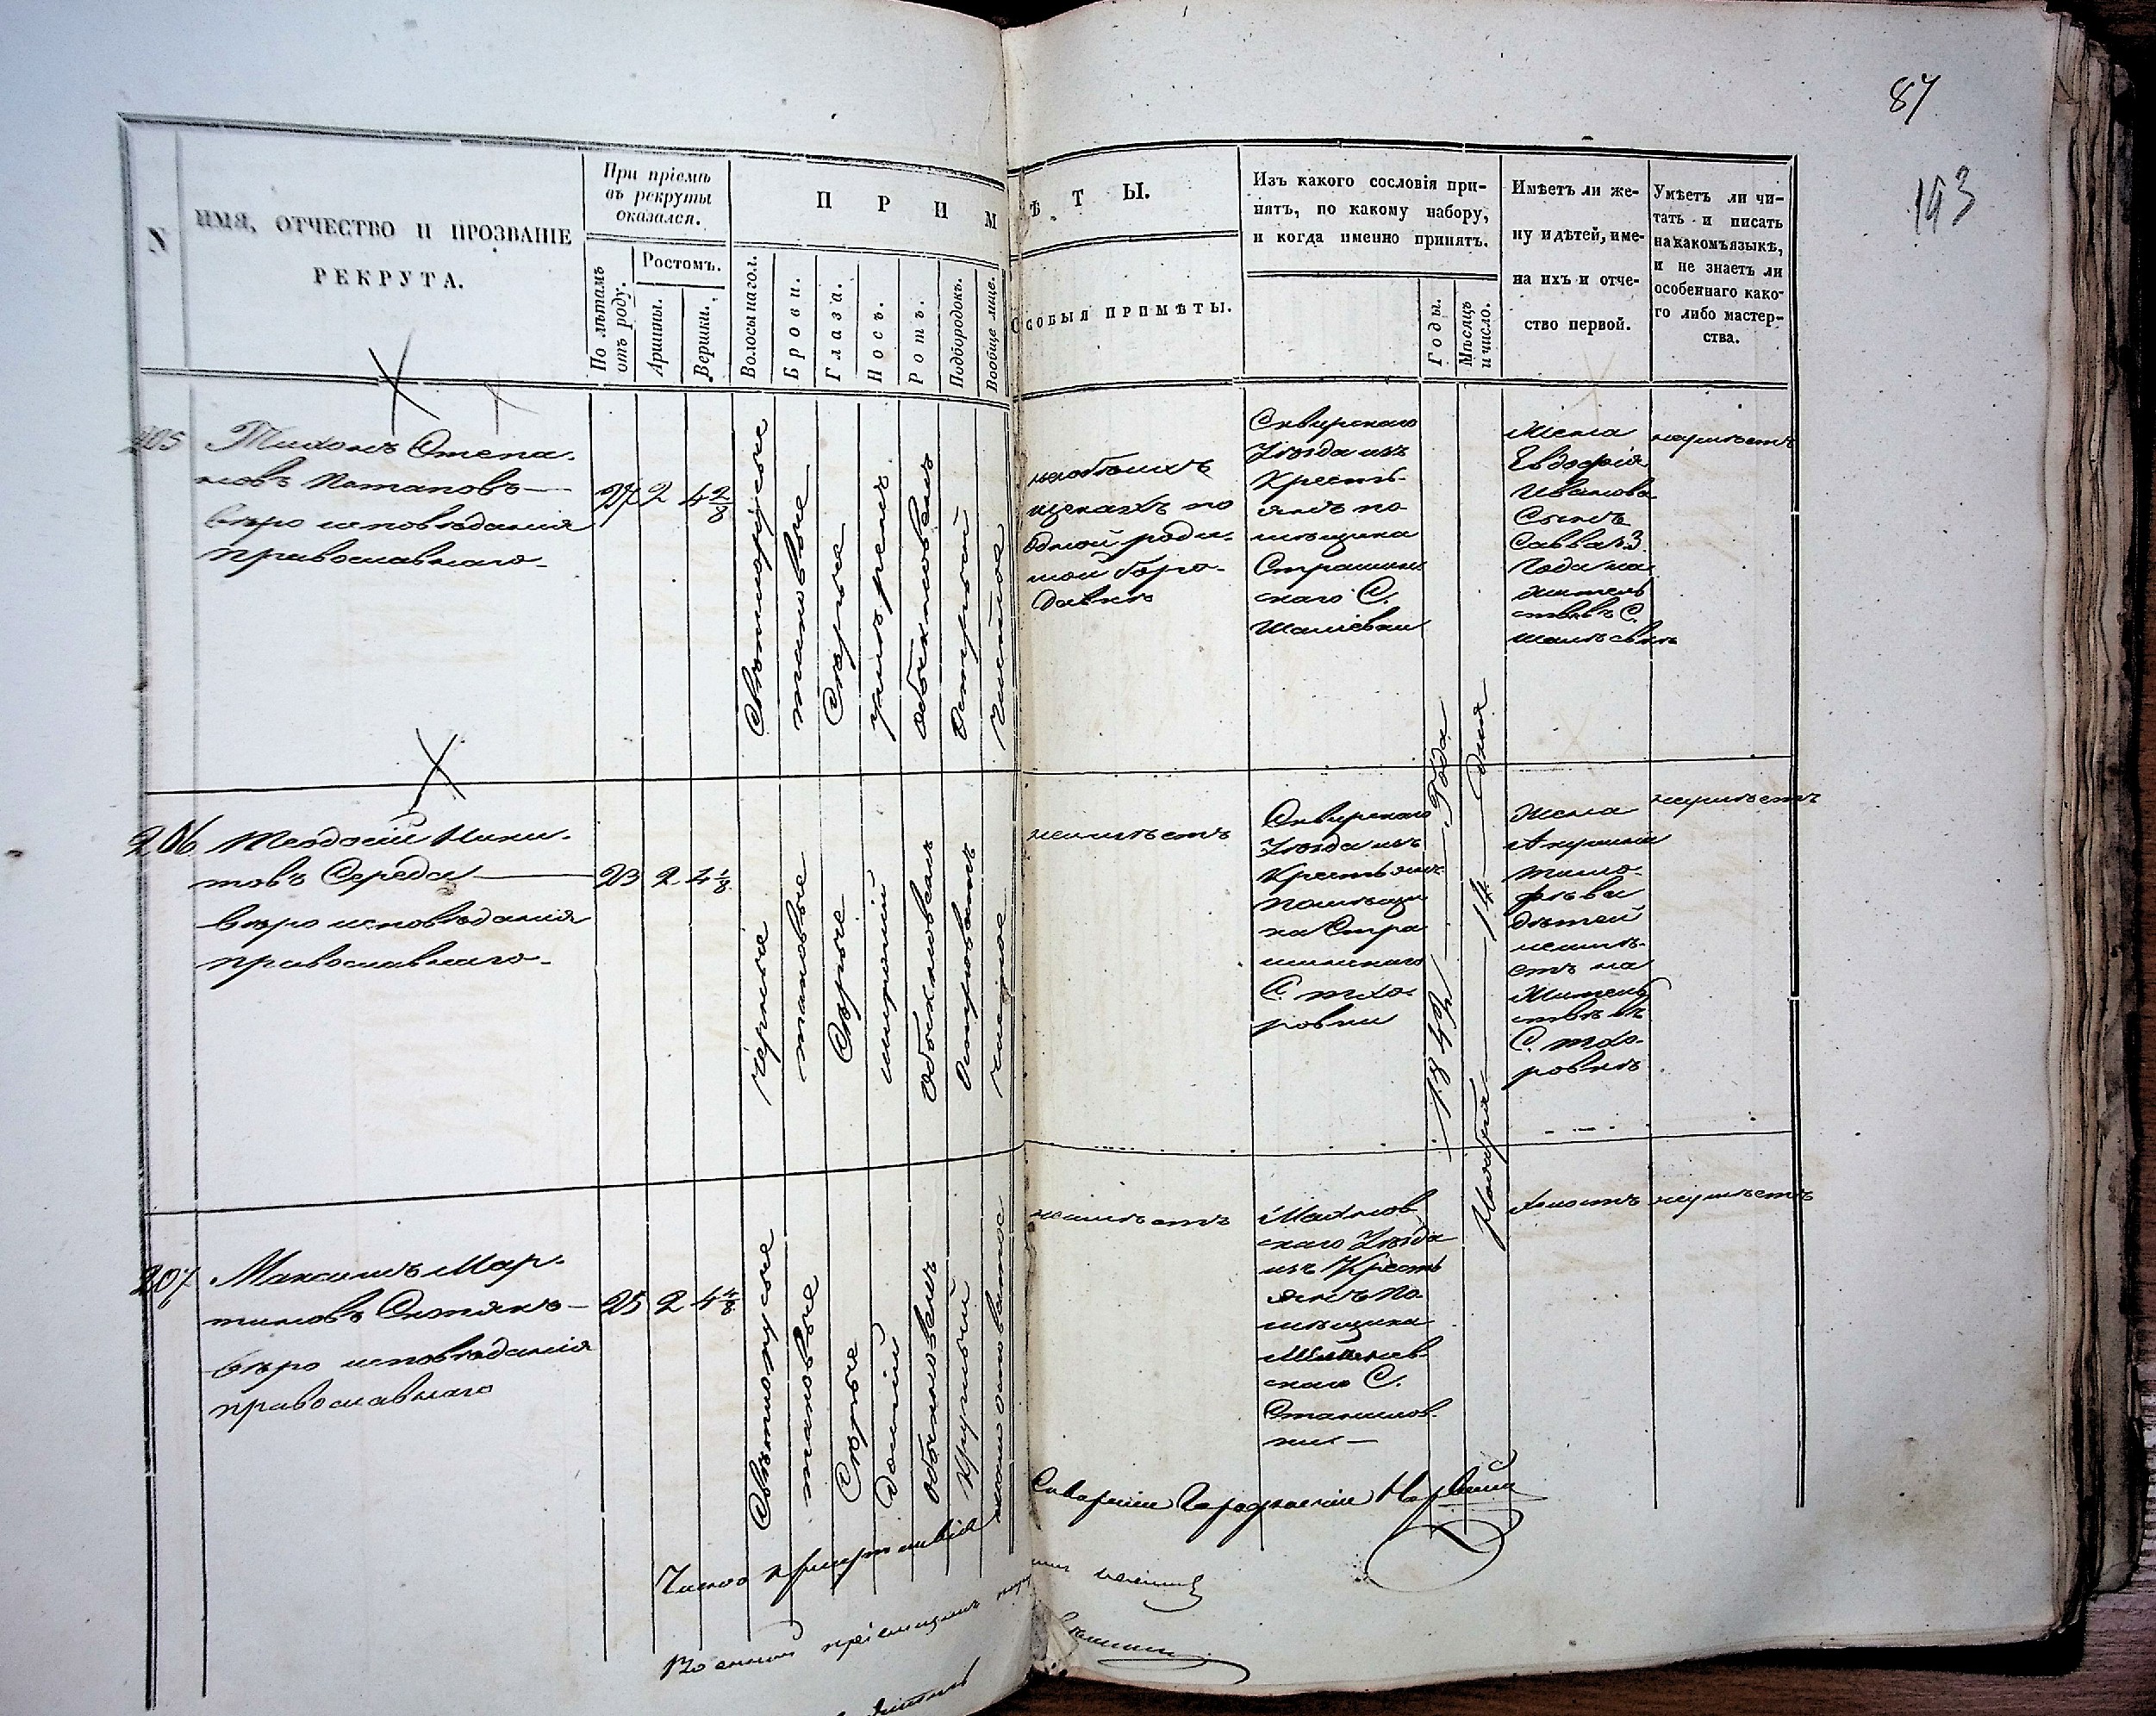 87
193
N
ИМЯ, ОТЧЕСТВО И ПРОЗВАНІЕ
РЕКРУТА.
При пріемѣ
въ рекруты
оказался.
По лѣтамъ
отъ роду.
Ростомъ.
Аршины.
Вершки.
П Р И М
Ѣ Т Ы.
Волосы на гол.
Брови.
Глаза.
Носъ.
Ротъ.
Подбородокъ.
Вообще лице.
ОСОБЫЯ ПРИМѢТЫ.
Изъ какого сословія при-
нятъ, по какому набору,
и когда именно принятъ.
Годы.
Мѣсяцъ
и число.
Имѣетъ ли же-
ну и дѣтей, име-
на ихъ и отче-
ство первой.
Умѣетъ ли чи-
тать и писать
на какомъ языкѣ,
и не знаетъ ли
особеннаго како-
го либо мастер-
ства.
205
Тихонъ Степа-
новъ Потаповъ—
вѣро исповѣданія
православнаго-
27
2
4 2/8
Свѣтлорусые
таковые
Сѣрые
умѣренъ
обыкновенъ
Острый
Чистое
на обоихъ
щекахъ по
одной роди-
мой боро-
давкѣ
Сквирскаго
Уѣзда изъ
Кресть-
янъ по-
мѣщика
Страшин
скаго С.
Жена
Евдокія
Иванова
Сынъ
Савва 3
года на
житель
ствѣ въ С.
неумѣетъ
206
Теодосій Ники-
товъ Середа—
вѣро исповѣданія
православнаго-
23
2
4 1/8
Черные
таковые
Сѣрые
широкій
Обыкновенъ
Островатъ
чистое
неимѣетъ
Сквирскаго
Уѣзда изъ
Крестьянъ
помѣщи
ка Стра
шинскаго
С. Тхо-
ровки
1842 Года
Ноября 14 дня
Жена
Тимо-
фѣева
дѣтей
неимѣ-
етъ на
Житель
ствѣ въ
С. Тхо-
ровкѣ
неумѣетъ
207
Максимъ Мар-
тиновъ
вѣро исповѣданія
православнаго
25
2
Свѣтлорусые
таковые
Сѣрые
Долгій
обыкновенъ
Круглый
неимѣетъ
Махнов
скаго Уѣзда
изъ Кресть
янъ По-
мѣщика
скаго С.
Станилов-
ки—
Холостъ
неумѣетъ
Военный пріемщикъ